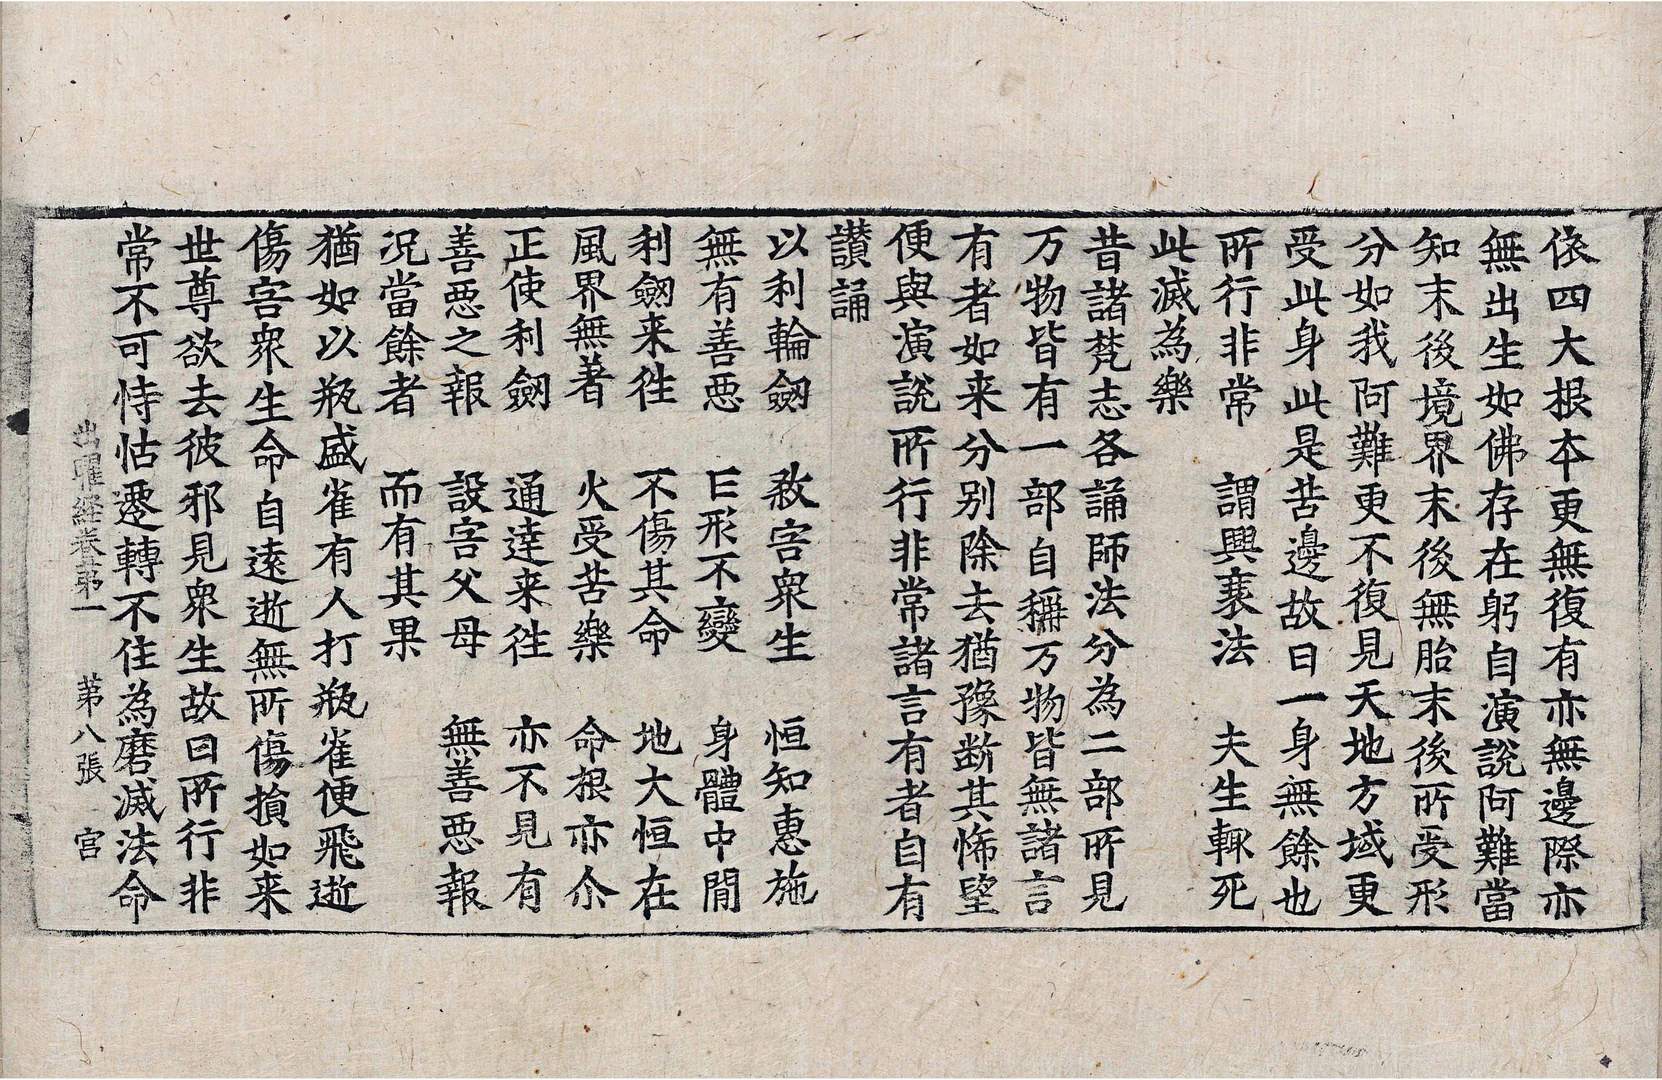 依四大根本更無復有亦無邊際亦
無出生如佛存在躬自演說阿難當
知末後境界末後無胎末後所受形
分如我阿難更不復見天地方域更
受此身此是苦邊故曰一身無餘也
所行非常　謂興衰法　夫生輒死
此滅為樂
昔諸梵志各誦師法分為二部所見
万物皆有一部自稱万物皆無諸言
有者如来分別除去猶豫断其怖望
便與演說所行非常諸言有者自有
讃誦
以利輪劒　教害衆生　恒知惠施
無有善惡　㠯形不變　身體中間
利劒来徃　不傷其命　地大恒在
風界無著　火受苦樂　命根亦尒
正使利劒　通達来徃　亦不見有
善惡之報　設害父母　無善惡報
况當餘者　而有其果
猶如以瓶盛雀有人打瓶雀便飛逝
傷害衆生命自遠逝無所傷損如来
世尊欲去彼邪見衆生故曰所行非
常不可恃怙遷轉不住為磨滅法命
出曜経巻苐一　苐八張　官